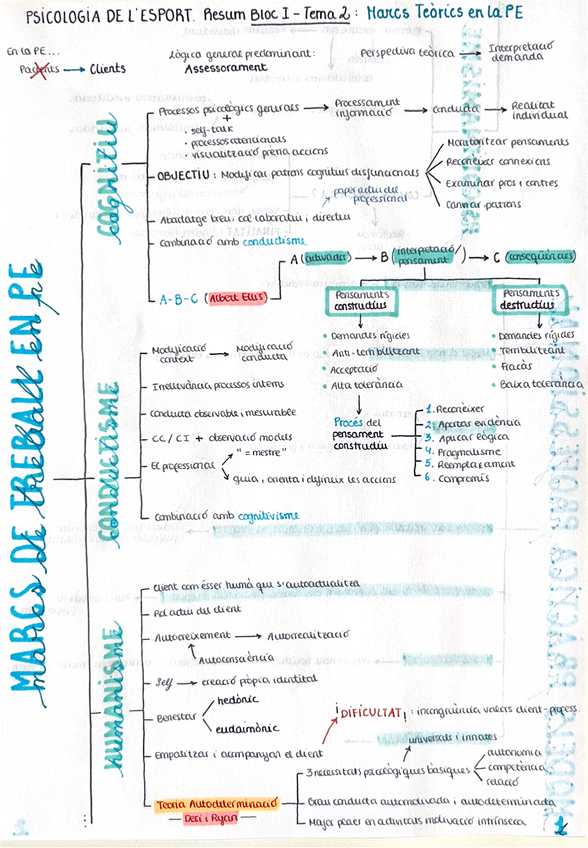 PSICOLOGIA DE L'ESPORT. Resum Bloc I - Tema 2: Marcs Teòrics en la PE
En la PE...
Pacients → Clients
Lògica general predominant:
Assessorament
Perspectiva teòrica → Interpretació demanda
MARCS DE TREBALL EN PE
COGNITIU
Processos psicològics generals → Processament informació → conducta → Realitat individual
+
· self-talk
· processos atencionals
· visualització prèvia accions
OBJECTIU: Modificar patrons cognitius disfuncionals
Monitoritzar pensaments
Reconèixer connexions
Examinar pros i contres
Canviar patrons
paper actiu del professional
Abordatge breu, col·laboratiu i directiu
Combinació amb conductisme
A-B-C (Albert Ellis)
A (activador) → B (interpretació/ pensament) → C (conseqüències)
Pensaments constructius
• Demandes rígides
• Anti-terribilitzant
• Acceptació
• Alta tolerància
Pensaments destructius
• Demandes rígides
• Terribilitzant
• Fracàs
• Baixa tolerància
Procés del pensament constructiu
1. Reconèixer
2. Aportar evidència
3. Aplicar lògica
4. Pragmatisme
5. Reemplaçament
6. Compromís
CONDUCTISME
Modificació context → Modificació conducta
Irrellevància processos interns
Conducta observable i mesurable
CC/CI + observació models
El professional
" = mestre"
guia, orienta i defineix les accions
Combinació amb cognitivisme
HUMANISME
Client com ésser humà que s'autoactualitza
Rol actiu del client
Autocreixement → Autorrealització
Autoconsciència
Self → creació pròpia identitat
Benestar
hedònic
eudaimònic
Empatitzar i acompanyar el client
¡DIFICULTAT!: incongruència valors client-profess.
universals i innates
Teoria Autodeterminació
Deci i Ryan
3 necessitats psicològiques bàsiques
autonomia
competència
relació
Grau conducta automotivada i autodeterminada
Major plaer en activitats motivació intrínseca
1